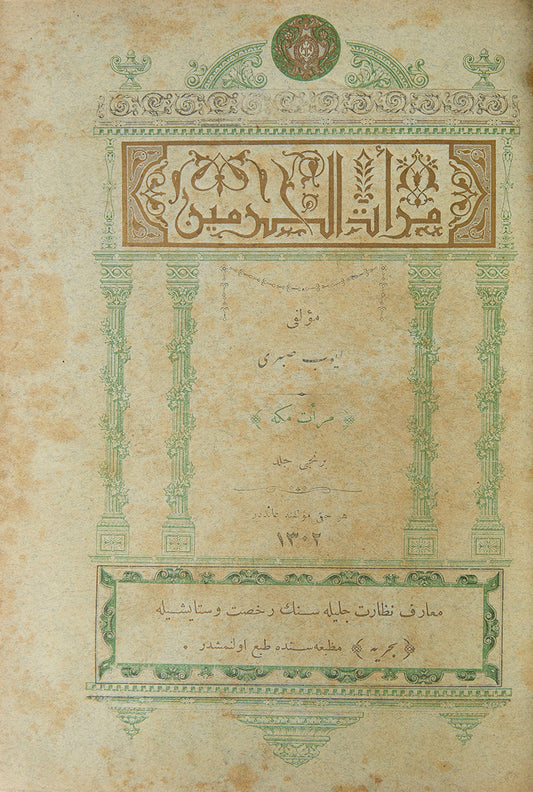 مرأت الحرمين
مؤلفى
ايوب صبرى
مرأت مكه
برنجى جلد
هر حق مؤلفنه عائددر
١٣٠٢
معارف نظارت جليله سنك رخصت وستايشيله
﴿ بحريه ﴾ مطبعه سنده طبع اولنمشدر .